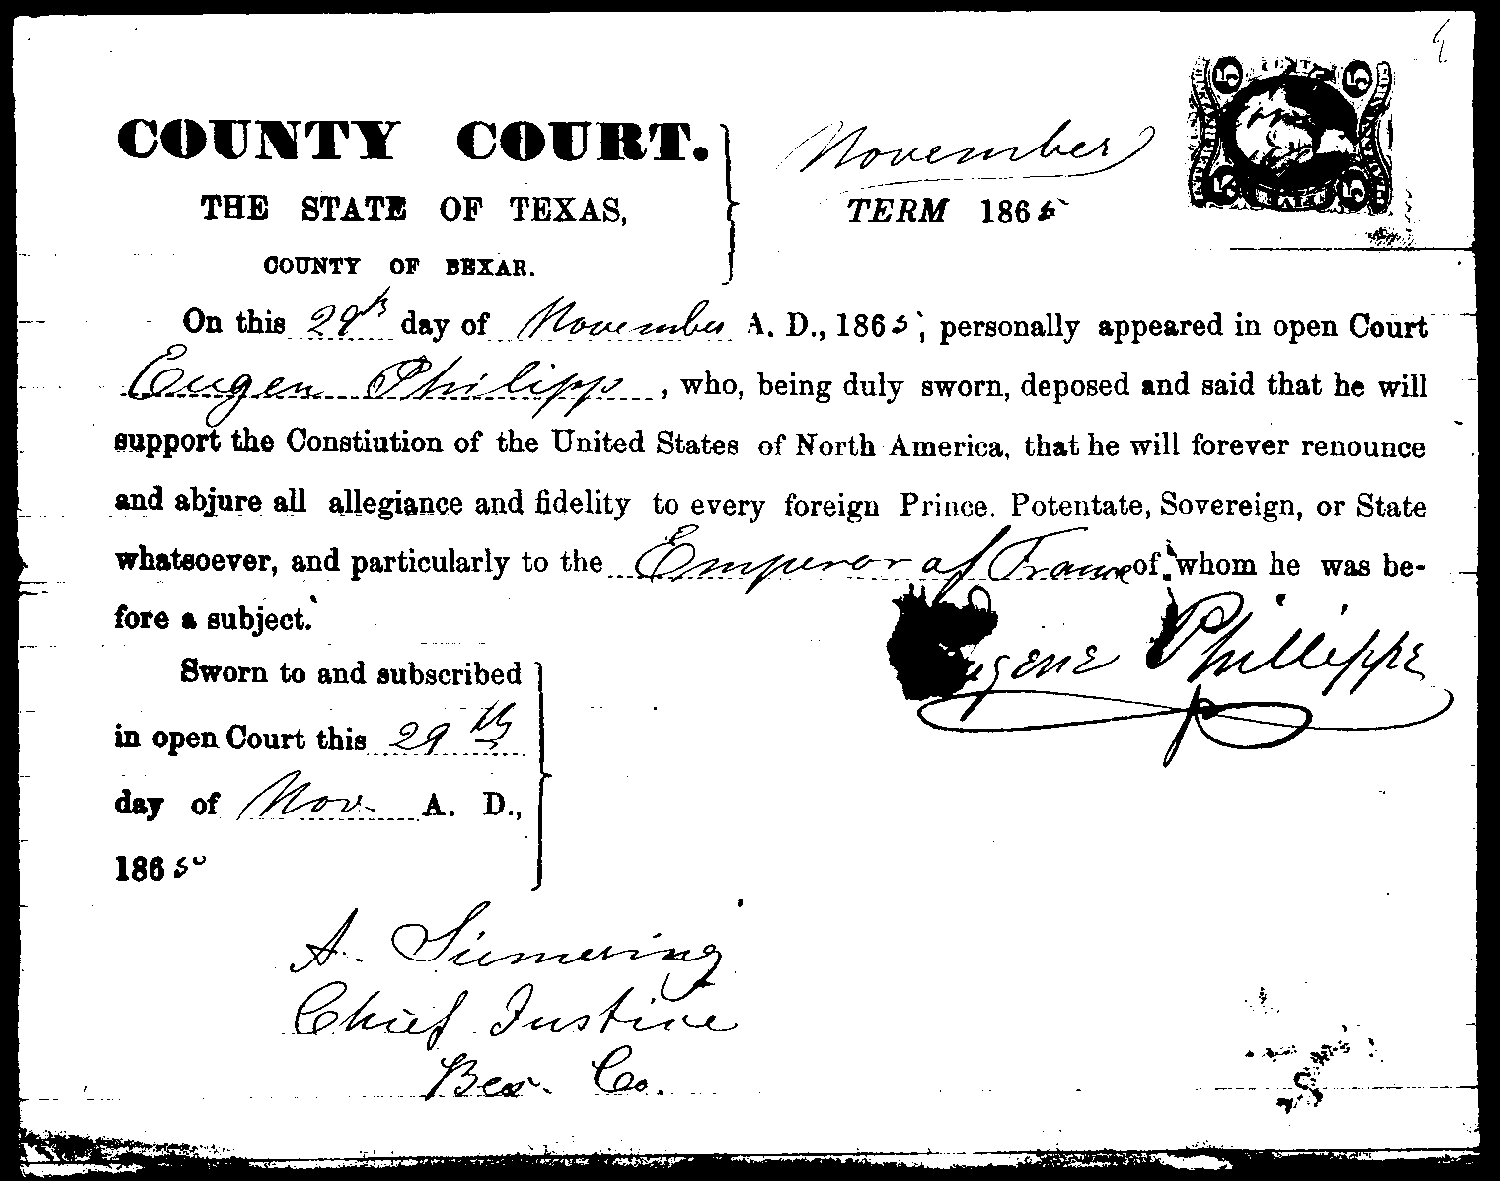 COUNTY COURT.
THE STATE OF TEXAS,
COUNTY OF BEXAR.
November
TERM 1865
On this 29th day of November A. D., 1865, personally appeared in open Court
Eugen Philipp, who, being duly sworn, deposed and said that he will
support the Constiution of the United States of North America, that he will forever renounce
and abjure all allegiance and fidelity to every foreign Prince. Potentate, Sovereign, or State
whatsoever, and particularly to the Emperor of France of whom he was be-
fore a subject.
Eugene Phillippe
Sworn to and subscribed
in open Court this 29th
day of Nov. A. D.,
1865
A. Siemering
Chief Justice
Bex. Co.